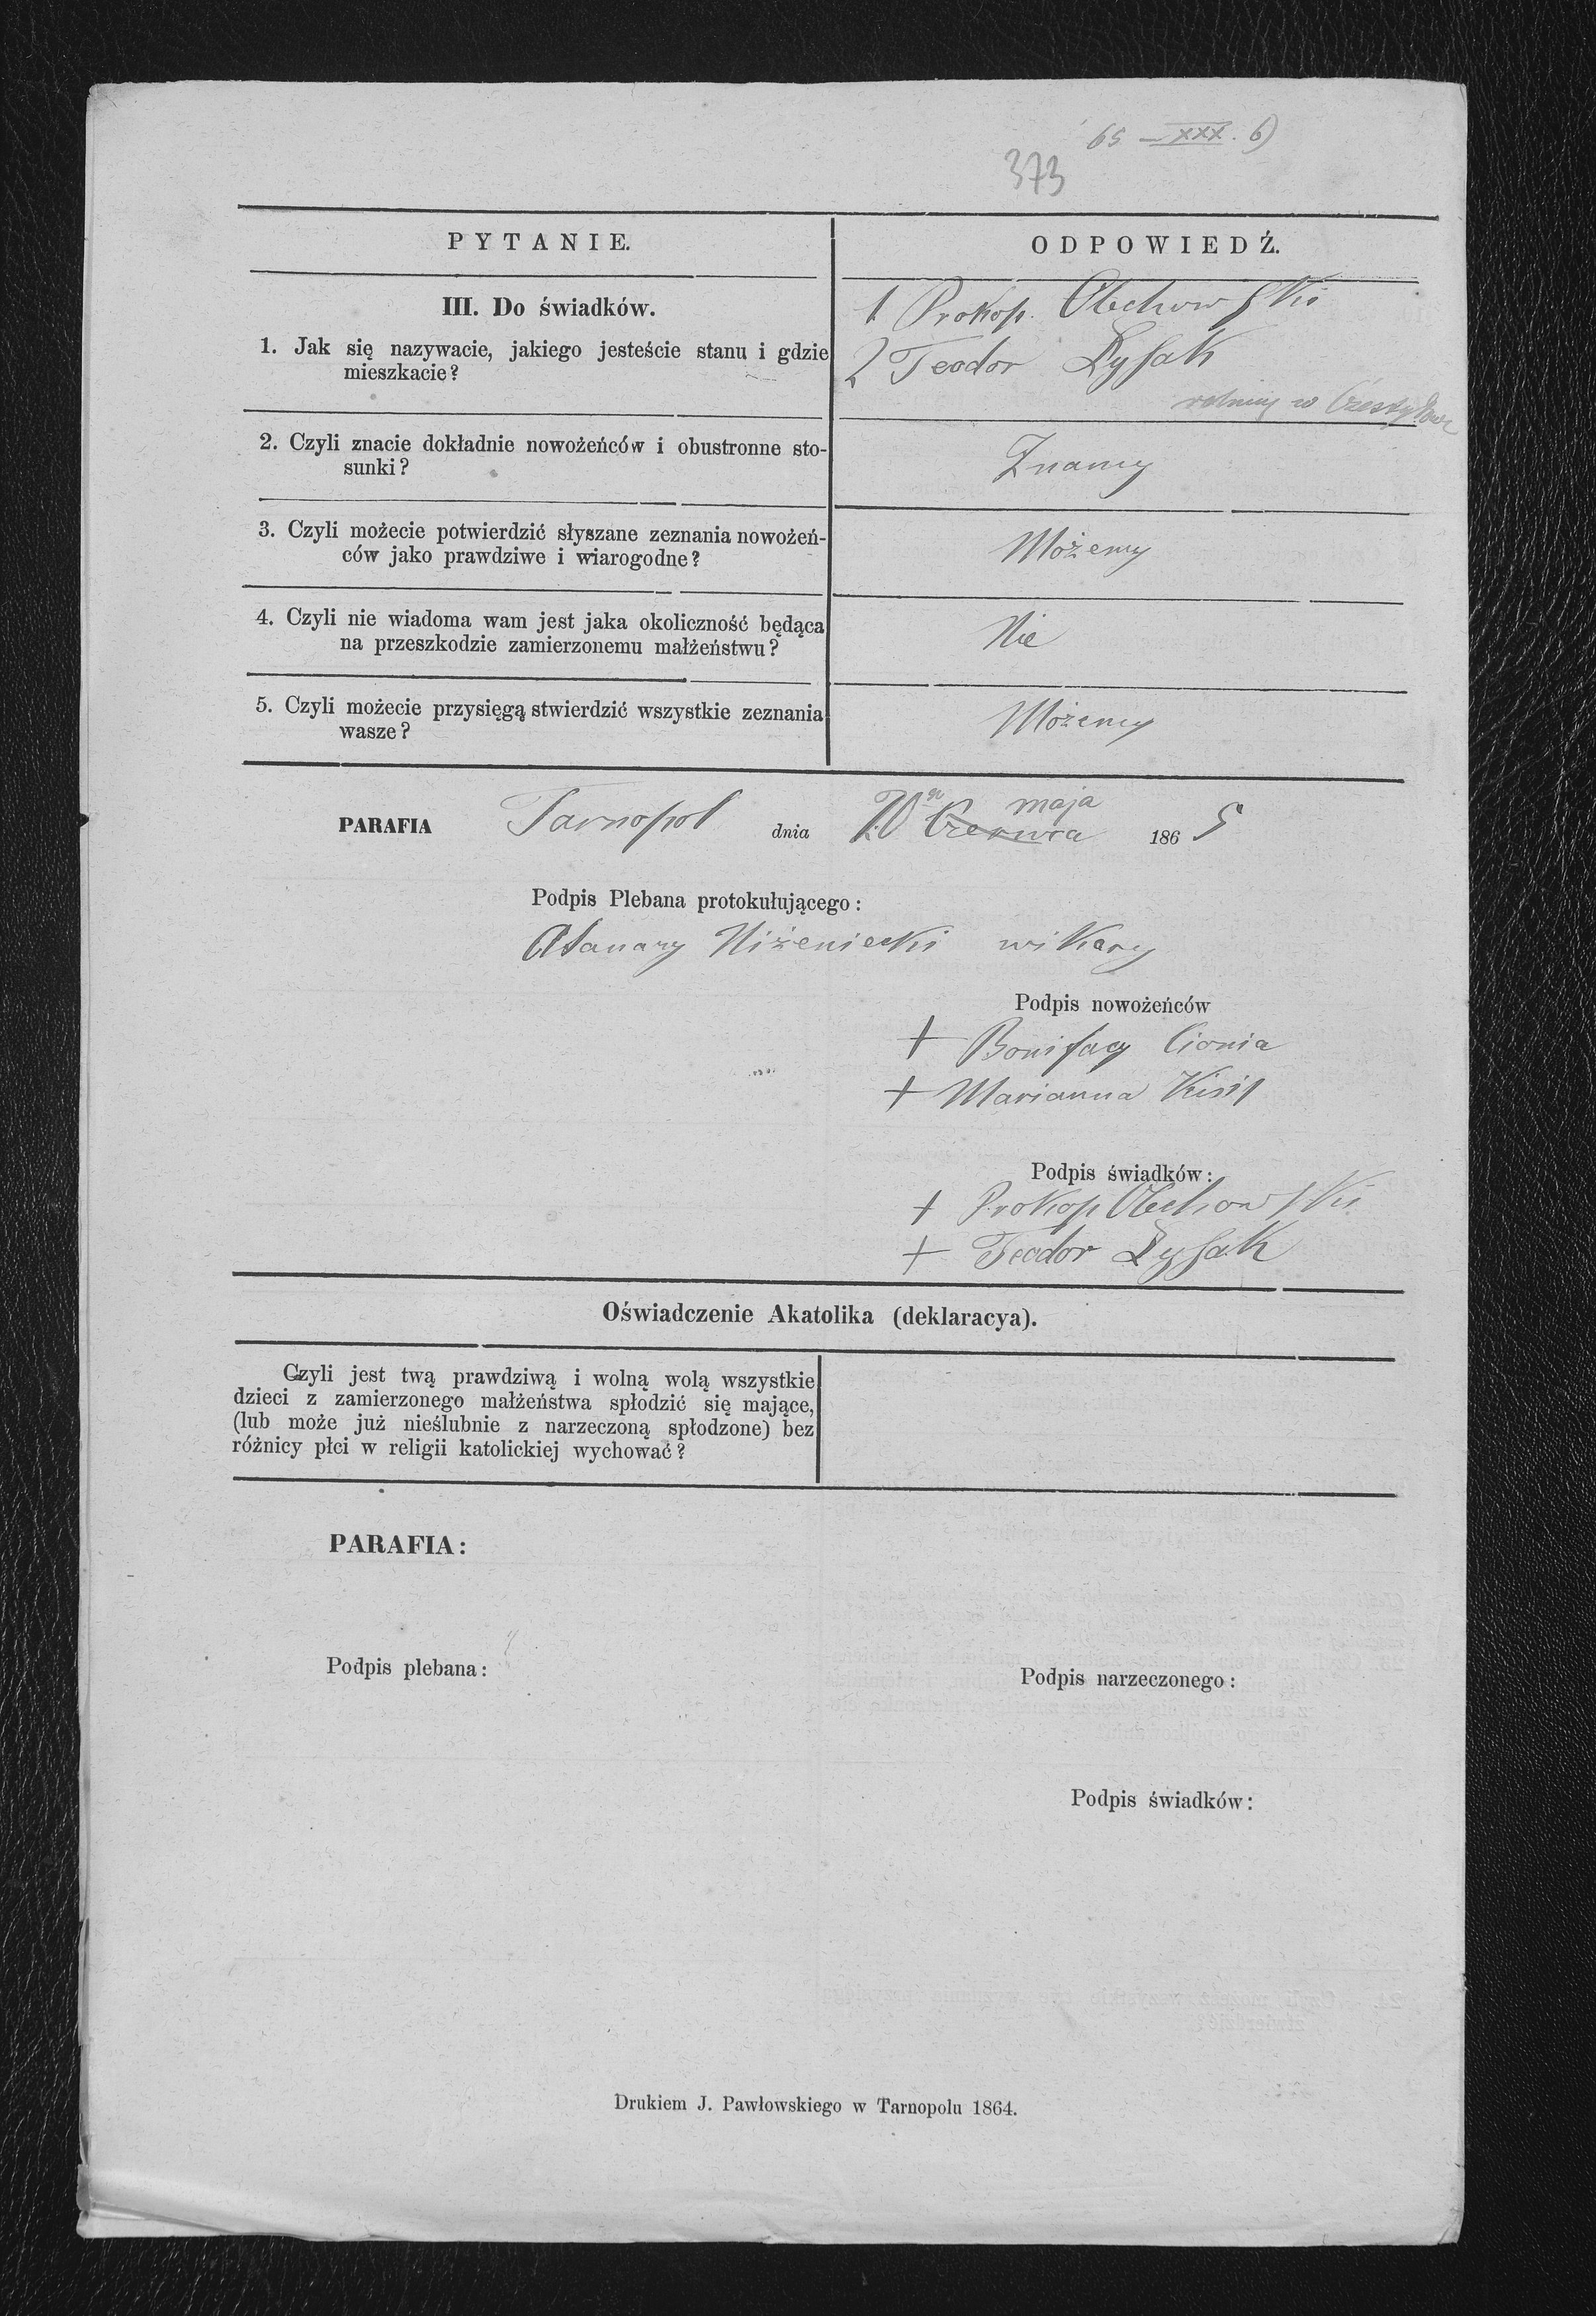 65 – XXX. 6)
373
PYTANIE.
ODPOWIEDŹ.
III. Do świadków.
1. Jak się nazywacie, jakiego jesteście stanu i gdzie
mieszkacie?
1 Prokop Olechowski
2 Teodor Łysak
rolnicy w
2. Czyli znacie dokładnie nowożeńców i obustronne sto-
sunki?
Znamy
3. Czyli możecie potwierdzić słyszane zeznania nowożeń-
ców jako prawdziwe i wiarogodne?
Możemy
4. Czyli nie wiadoma wam jest jaka okoliczność będąca
na przeszkodzie zamierzonemu małżeństwu?
Nie
5. Czyli możecie przysięgą stwierdzić wszystkie zeznania
wasze?
Możemy
maja
PARAFIA Tarnopol dnia Czerwca 1865
Podpis Plebana protokułującego:
Atanazy Niżeniecki wikary
Podpis nowożeńców
+ Bonifacy Cionia
+ Marianna Kisil
Podpis świadków:
+ Prokop Olechowski
+ Teodor Łysak
Oświadczenie Akatolika (deklaracya).
Czyli jest twą prawdziwą i wolną wolą wszystkie
dzieci z zamierzonego małżeństwa spłodzić się mające,
(lub może już nieślubnie z narzeczoną spłodzone) bez
różnicy płci w religii katolickiej wychować?
PARAFIA:
Podpis plebana:
Podpis narzeczonego:
Podpis świadków:
Drukiem J. Pawłowskiego w Tarnopolu 1864.